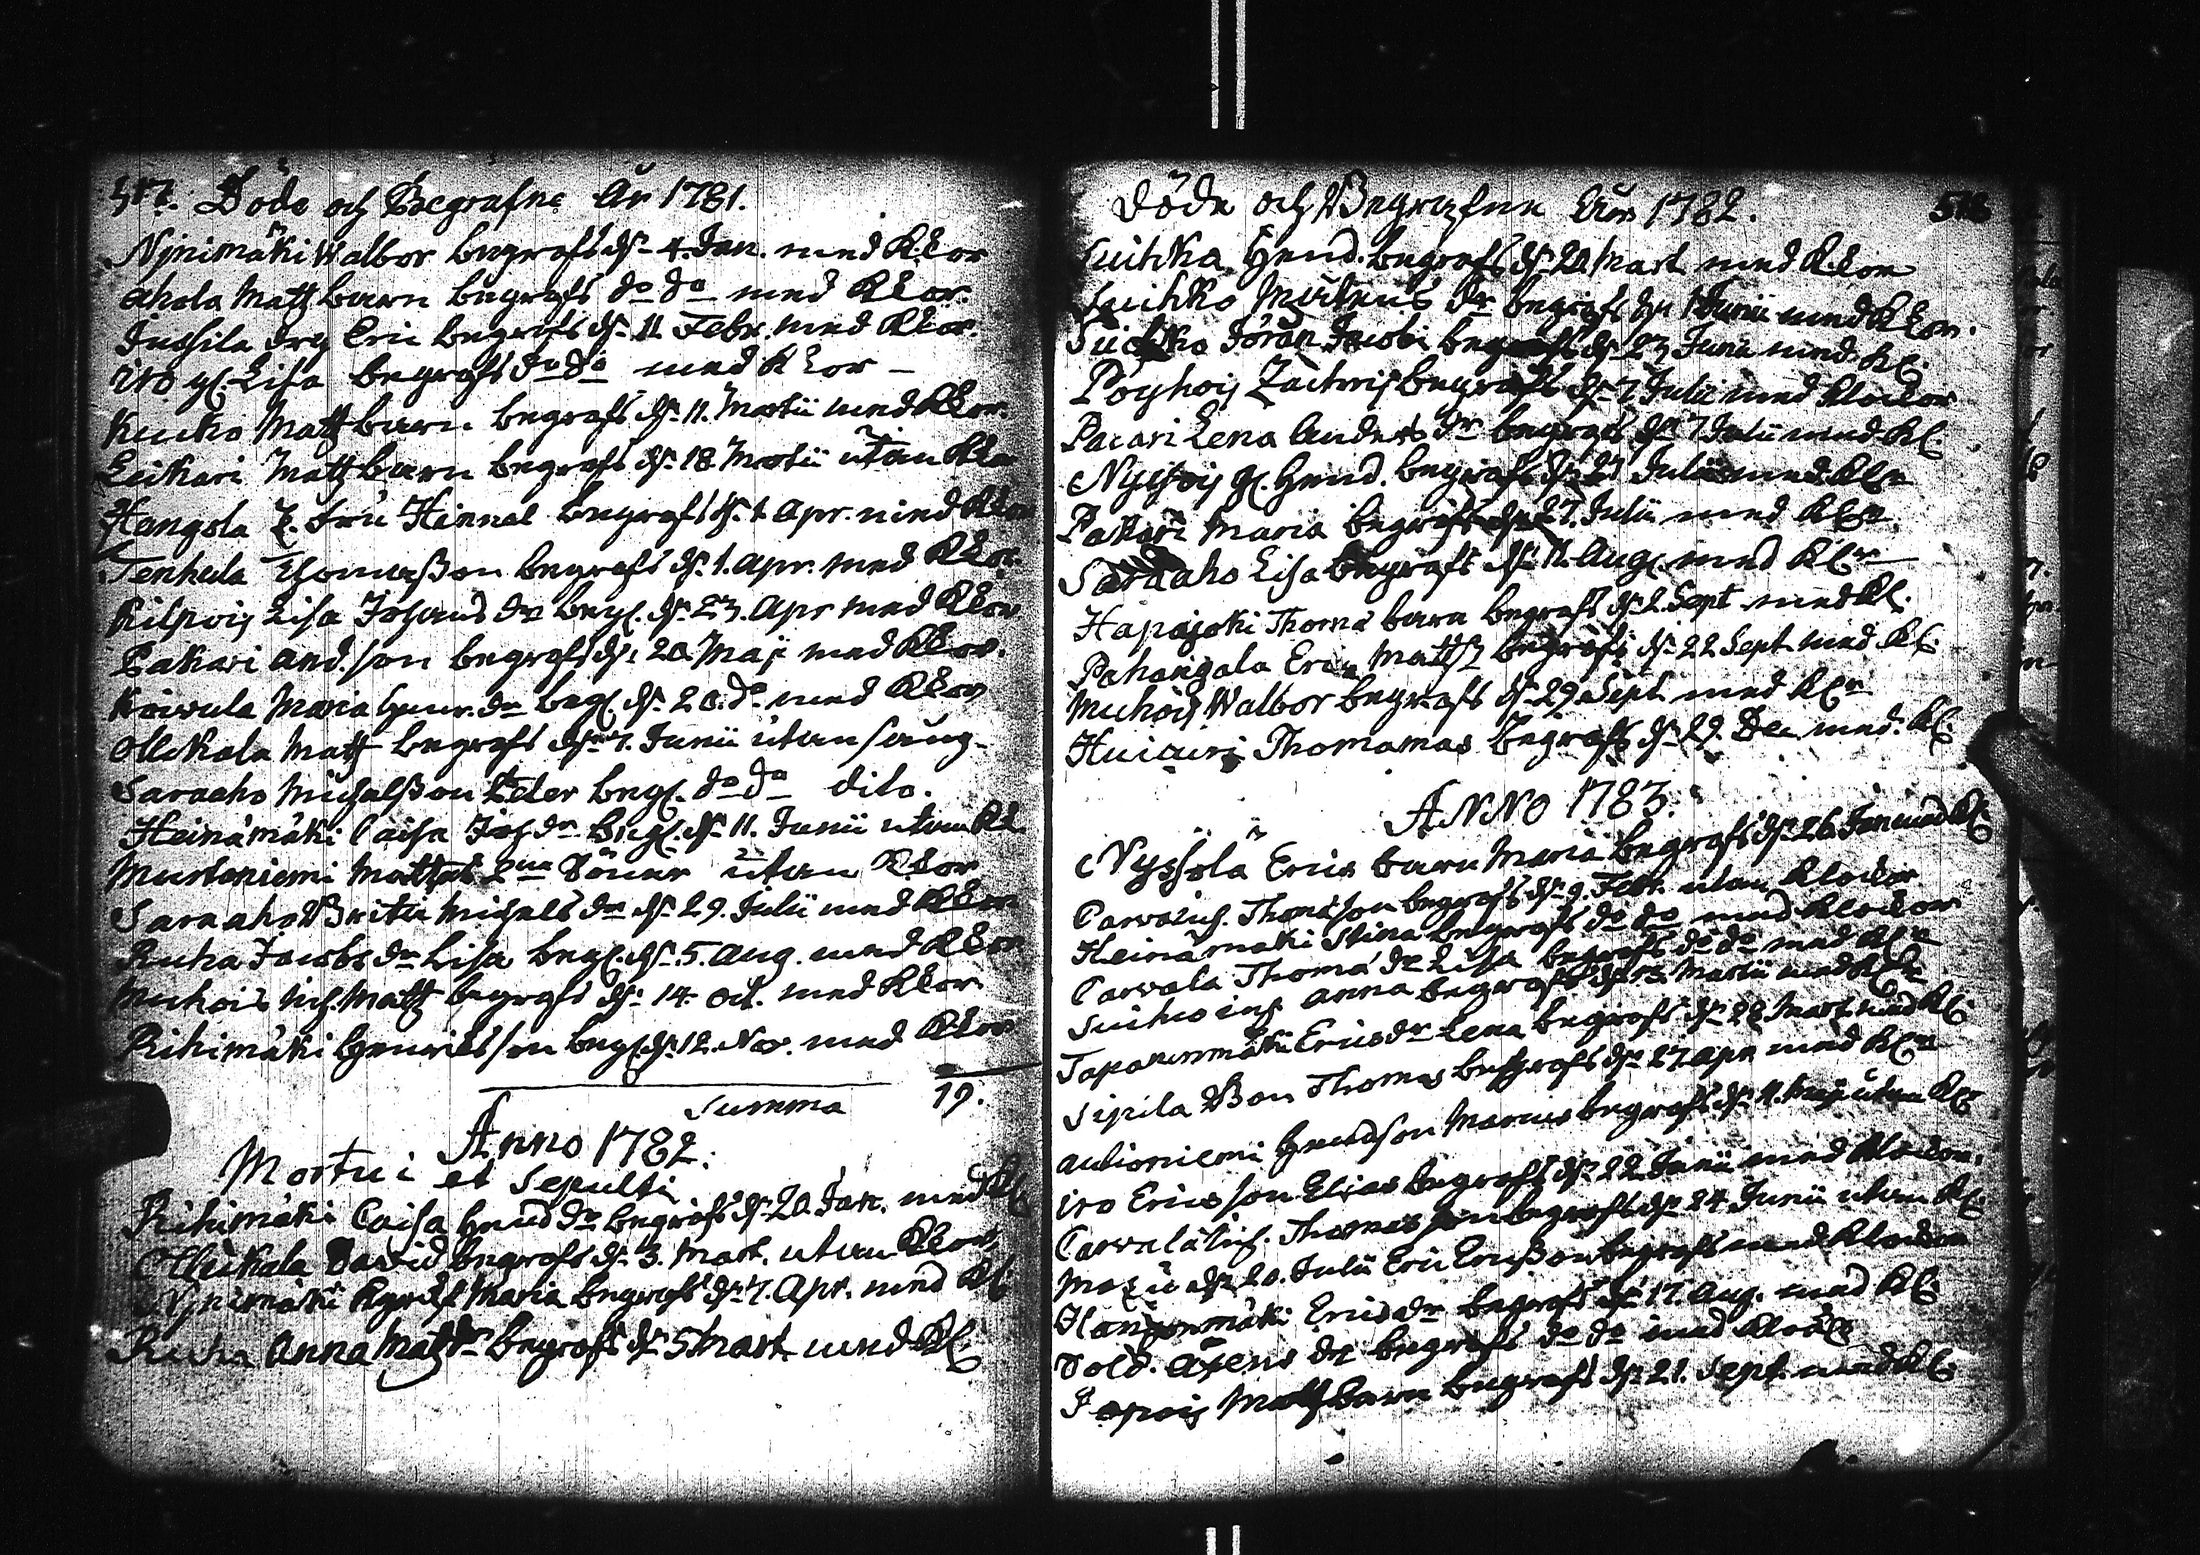 517. Döde och Begrafne År 1781.
Njnimäki Walbor begrofs dn 4. Jan. med Klor
ahola Matts barn begrofs do do med Klor.
Jussila drg Eric begrofs dn 11 Febr. med Klor.
iro gl Lisa begrofs do do med Klor
Kucko Matts barn begrofs dn 11. Martii med Klor.
Leikari Matts barn begrofs dn 18 Martii utan Klo
Hangola begrofs dn 1 Apr. med Klo
Tenhula Thomasson begrofs dn 1. Apr. med Klor.
Kilpois Lisa Johans dr begr. dn 23. Apr med Klor
Pakari And.son begrofs dn 20 Maji med Klor.
Koivula Maria Henr. dr begr. dn 20. do med Klor
Ollikala Matts begrofs dn 7. Junii utan sång
Saraaho Michelsson Peter begr. do do dito.
Heinämäki Caisa Joh dr begr. dn 11. Junii utan Kl
Murtoniemi Mattses 2ne Söner utan Klor
Saraaho Britha Michels dr dn 29. Julii med Klor
Ruha Jacobs dr Lisa begr. dn 5. Aug. med Klor
Muhois inh. Matts begrofs dn 14. Oct. med Klor
Rihimäki Henrics son begr. dn 12. Nov. med Klor
Summa 19.
Anno 1782.
Mortui et Sepulti
Rihimäki Caisa Hend dr begrofs dn 20 Jan. med Kl
Ollikala David begrofs dn 3. Mart. utan Klor
Njnimäki Maria begrofs dn 7. Apr. med Kl
Ruha Anna Matts dr begrofs dn 5 Mart med Kl
Döde och Begrafne År 1782. 518
Suihka Hend. begrofs dn 20 Mart med Klor
Suihko dr begrofs dn 1 Junii med Klor.
Suihko Jöran Jacobi begrofs dn 23 Junii med Kl.
Pöyhöis Zachris begrofs dn 7 Julii med Klockor
Pacari Lena Anders dr begrofs dn 7 Julii med Kl.
gl. Hend. begrofs dn Julii med Klr
Pakari Maria begrofs dn 27. Julii med Klr
Saraaho Lisa begrofs dn 11. Aug. med Klr
Hapajoki Thoma barn begrofs dn 2 Sept med Kl.
Pahangala Eric Matts begrofs dn 22 Sept med Kl.
Muhois Walbor begrofs dn 29 Sept med Klr
Huicuri Thomamas begrofs dn 29. Dec med. Kl.
ANNO 1783.
Nyssölä Erics barn Maria begrofs dn 26. Jan med Kl.
Carvala inh. Thomasson begrofs dn 9. Febr. utan Klockor
Heinämäki Stina begrofs do do med Klockor
Carvala Thoma dr Lisa begrofs do do med Klr
Suihko inh Anna begrofs dn Martii med Klr
Eric dr Lena begrofs dn 28 Mart. med Kl.
Sipila Thomas begrofs dn 27 Apr. med Klr
autioniemi Hendson Marcus begrofs dn 11. Maji utan Klr
iro Erics son Elias begrofs dn 22 Junii med Klockor.
Carvala inh. Thomas son begrofs dn 24 Junii utan Kl.
dn 20. Julii Eric Ericsson begrofs med Klockor
Hangonmäki Eric dr begrofs dn 17. Aug. med Kl.
Sold. Axens dr begrofs do do med
Matts barn begrofs dn 21. Sept. med Kl.